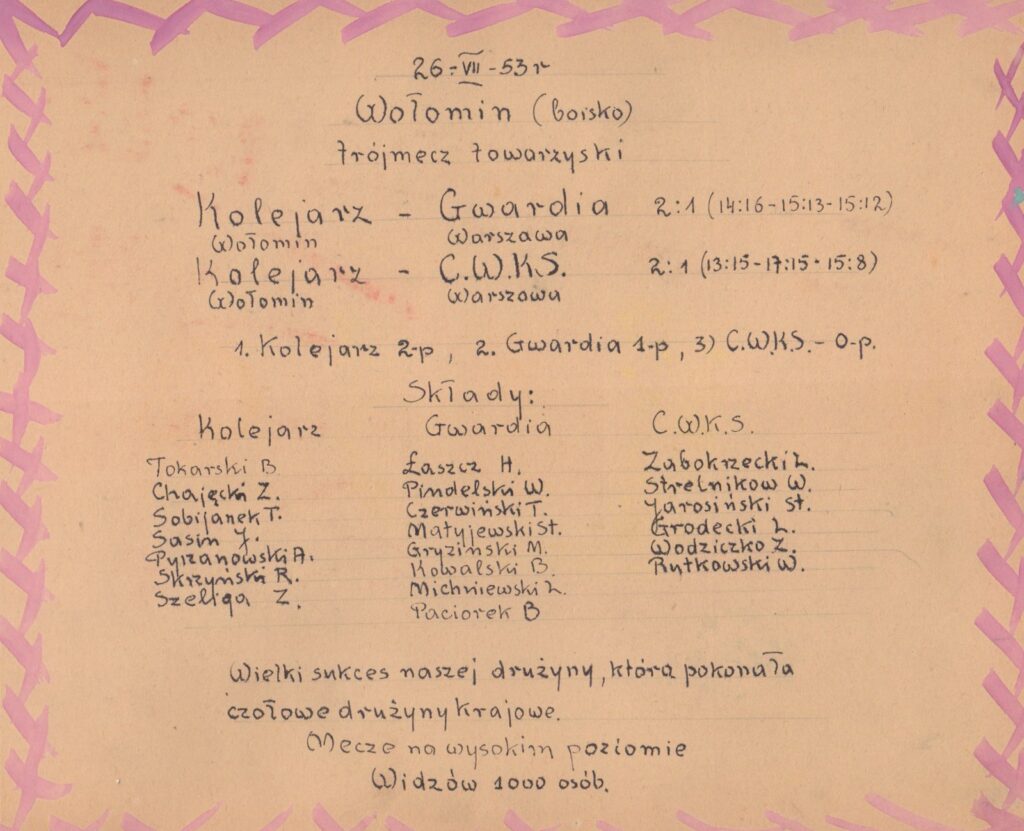 26-VII-53r
Wołomin (boisko)
trójmecz towarzyski
Kolejarz - Gwardia 2:1 (14:16-15:13-15:12)
Wołomin Warszawa
Kolejarz - C.W.K.S. 2:1 (13:15-17:15-15:8)
Wołomin Warszawa
1. Kolejarz 2-p, 2. Gwardia 1-p, 3) C.W.K.S. - 0-p.
Składy:
Kolejarz Gwardia C.W.K.S.
Tokarski B. Łaszcz H. Zabokrzecki L.
Chajęcki Z. Pindelski W. Strelnikow W.
Sobijanek T. Czerwiński T. Jarosiński St.
Sasin J. Matyjewski St. Grodecki L.
Pyrzanowski A. Gryziński M. Wodziczko Z.
Skrzyński R. Kowalski B. Rutkowski W.
Szeliga Z. Michniewski L.
Paciorek B
Wielki sukces naszej drużyny, która pokonała
czołowe drużyny krajowe.
Mecze na wysokim poziomie
Widzów 1000 osób.